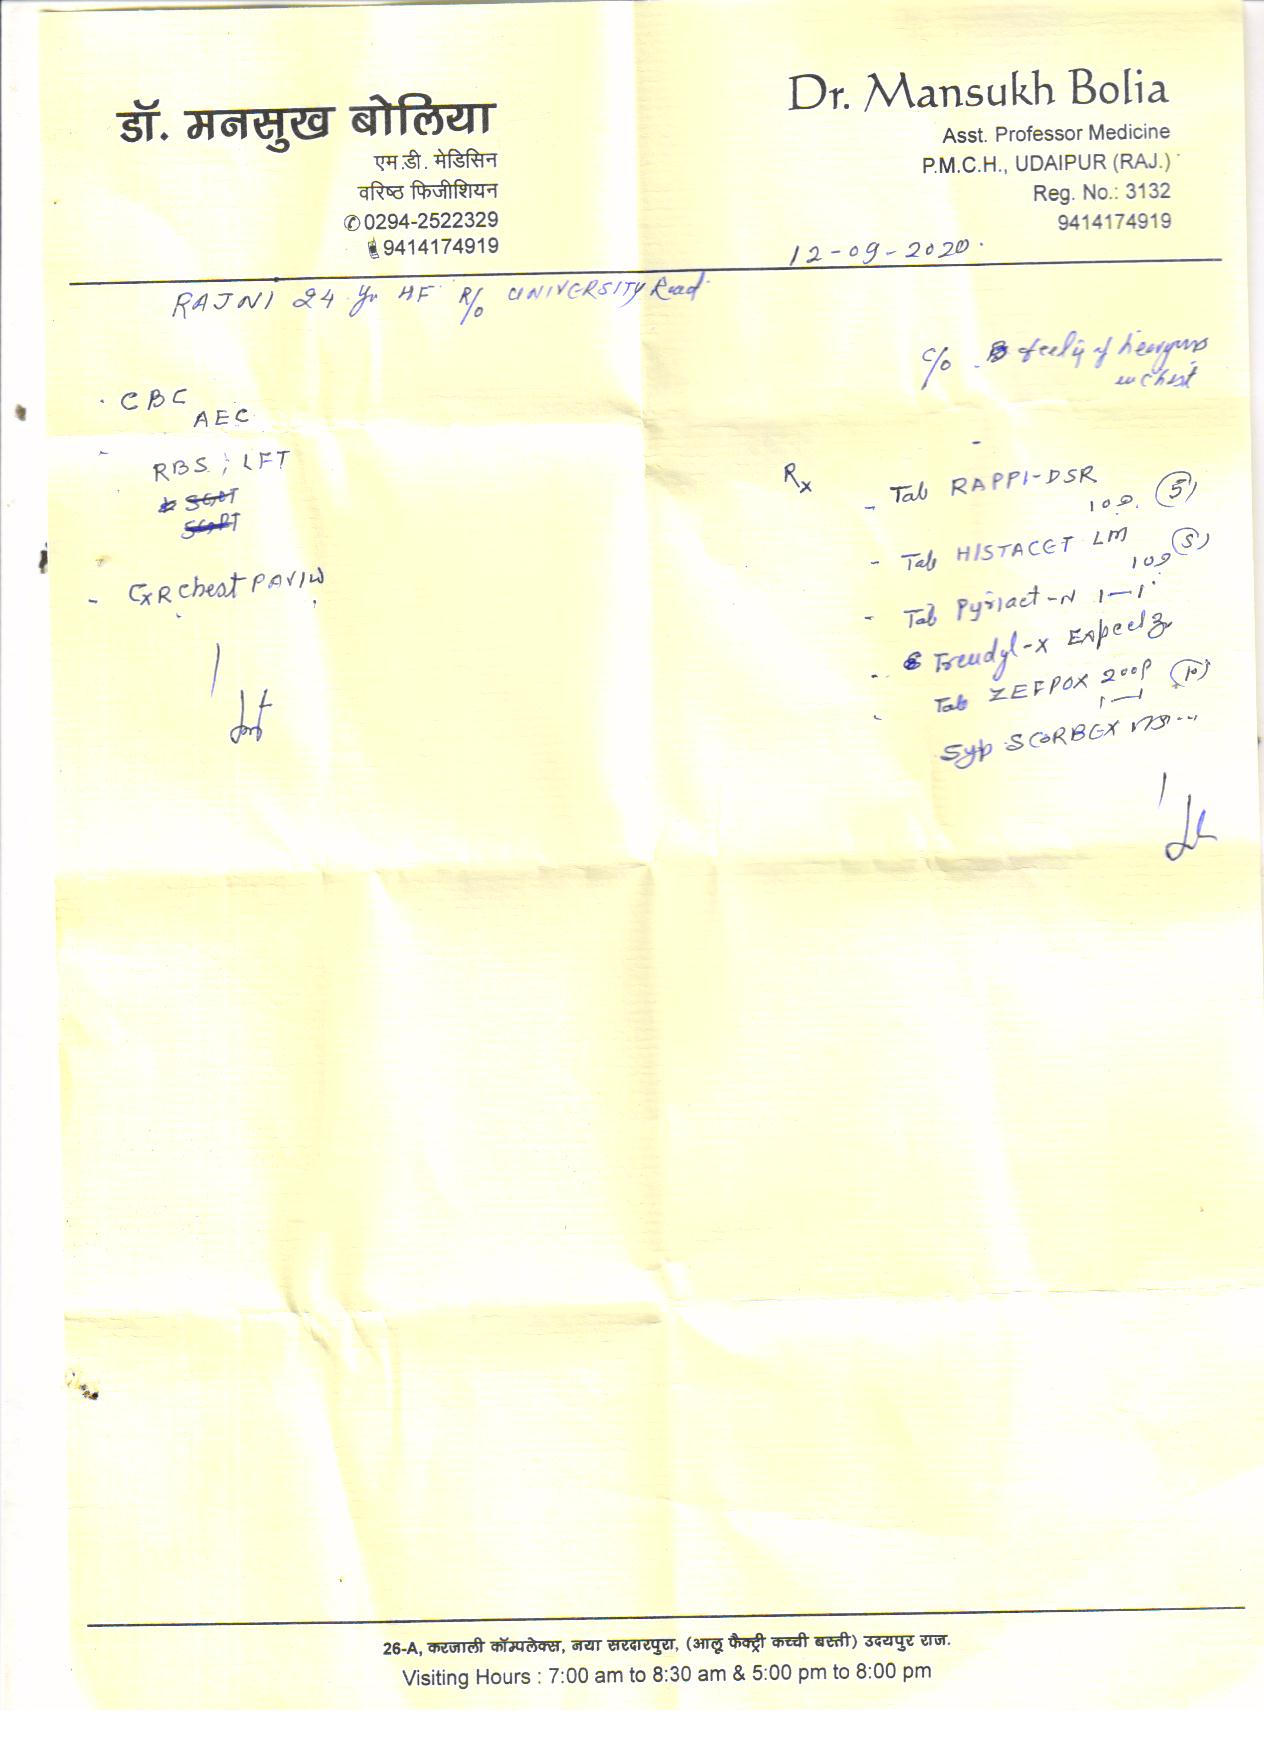 डॉ. मनसुख बोलिया
एम.डी. मेडिसिन
वरिष्ठ फिजीशियन
✆0294-2522329
9414174919
Dr. Mansukh Bolia
Asst. Professor Medicine
P.M.C.H., UDAIPUR (RAJ.)
Reg. No.: 3132
9414174919
12-09-2020
RAJNI 24 Yr HF R/o UNIVERSITY Road
C/o
in Chest
CBC
AEC
RBS ; LFT
CXR Chest PA
Rx
- Tab RAPPI-DSR
10D. (5)
- Tab HISTACET LM (5)
- Tab 1-1
Tab ZEFPOX 200 (10)
1-1
Syp SCORBEX
26-A, करजाली कॉम्पलेक्स, नया सरदारपुरा, (आलू फैक्ट्री कच्ची बस्ती) उदयपुर राज.
Visiting Hours : 7:00 am to 8:30 am & 5:00 pm to 8:00 pm